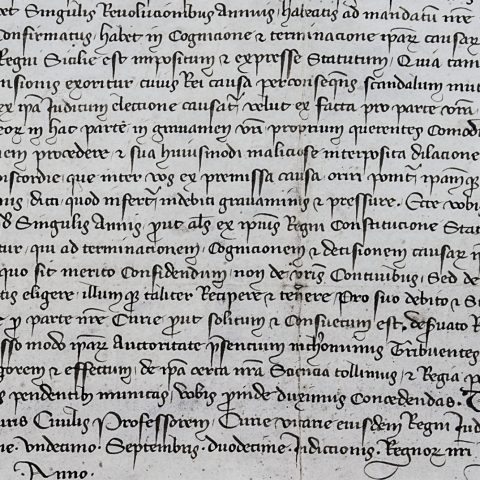 et Singulis Revolucionibus Annuis habeatis ad mandatum nre
Confirmatus habet in Cognicione & terminacione ipar causar
Regni Sicilie est impositum & expresse Statutum Quia tam
nsionis exoritur cuius Rei causa per consequens scandalum mut
ex ipa Judicum electione causat velut ex facta pro parte vra
eor in hac parte in gravamen vrm proprium querentes Comod
nem procedere & sua huiusmodi maliciose interposita dilacione
iscordie que inter vos ex premissa causa oriri
nus dici quod infert indebiti gravaminis & pressure. Ecce vobis
d Singulis Annis prout als ex ipius Regni Constitucione Stat
tur qui ad terminacionem Cognicionem & decisionem causar
quo sit merito Confidendum non de vris Convicinibus Sed de
tis eligere illumque taliter Recipere & tenere Pro suo debito & S
e pro parte nre Curie prout solitum & Consuetum est.
sso modo ipar Auctoritate psencium Tribuentes
gorem & effectum de ipa certa nra Sciencia tollimus & Regia p
s pendentibus munitas vobis proinde duximus Concedendas.
uris Civilis Professorem Curie vicarie eiusdem Regni Jud
ne Undecimo Septembris duodecime Indictionis Regnor nri
Anno